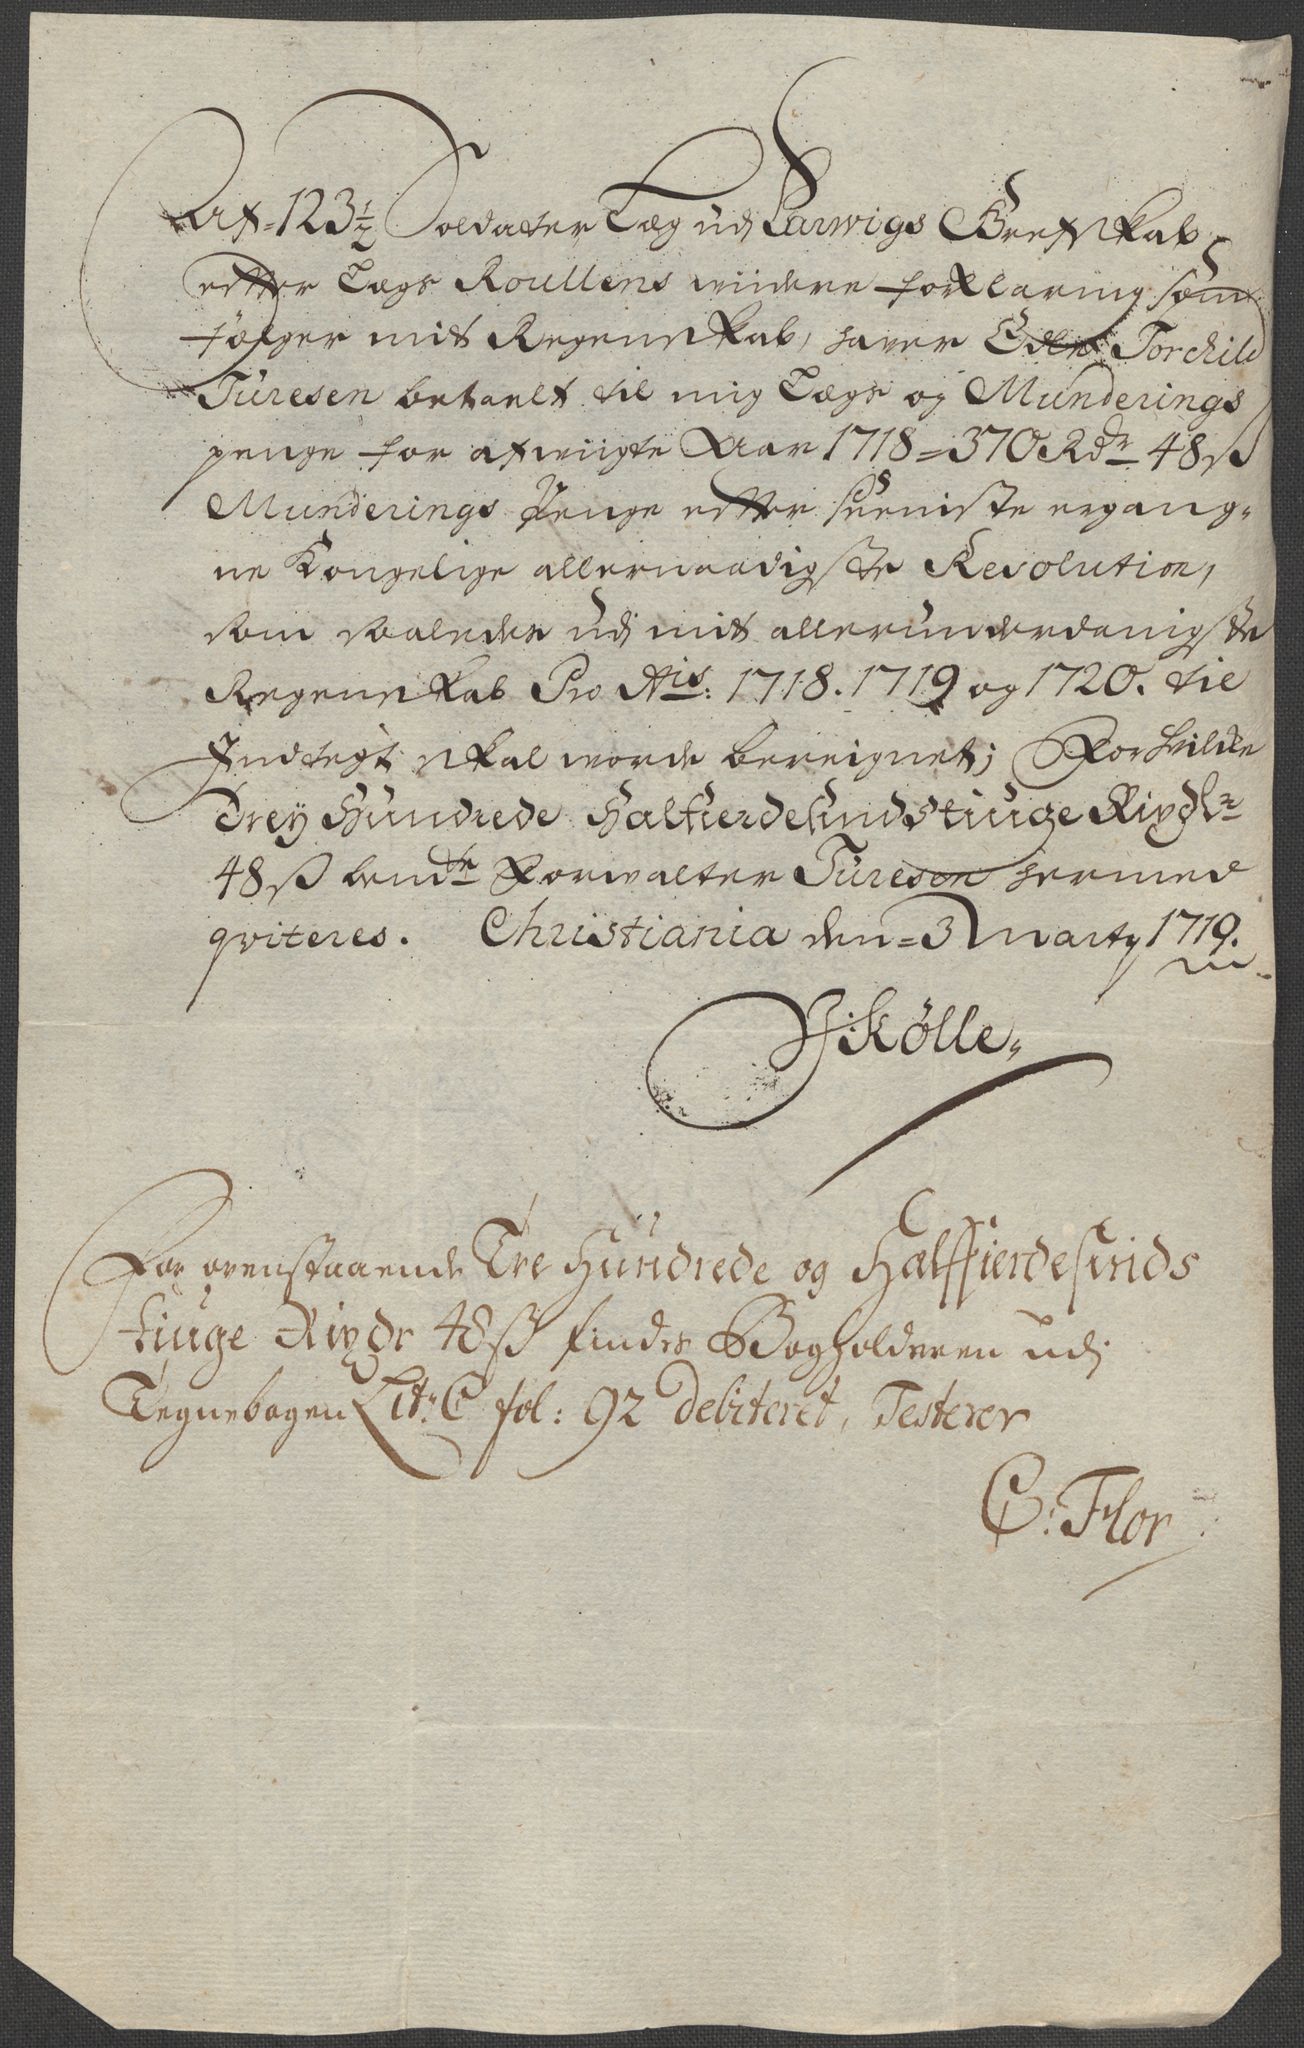 Af = 123½ Soldater Læg udj Larwigs Grefskab
efter Lægs Roullens widere forklaring som
følger mit Regenskab, hafver Edle Torchild
Turesen betaelt til mig Lægs og Munderings
penge for afwigte Aar 1718 = 370 Rdr 48 ß
Munderings Penge efter seeniste ergang-
ne Kongelige allernaadigste Resolution,
som saaledes udj mit allerunderdanigste
Regenskab Pro Ais: 1718. 1719 og 1720. til
Indtegt skal worde bereignet; For hvilke
Trey Hundrede Halfierdesindstiuge Rixdlr
48 ß bemte Forwalter Turesen hermed
qviteres. Christiania den = 3 Marty 1719.
J: Kølle,
For ovenstaaende Tre Hundrede og Halffierdesinds
tiuge Rixdr 48 ß findes Bogholderen udj
Tegnebogen Lit: C fol: 92 debiteret, Testerer
C: Flor